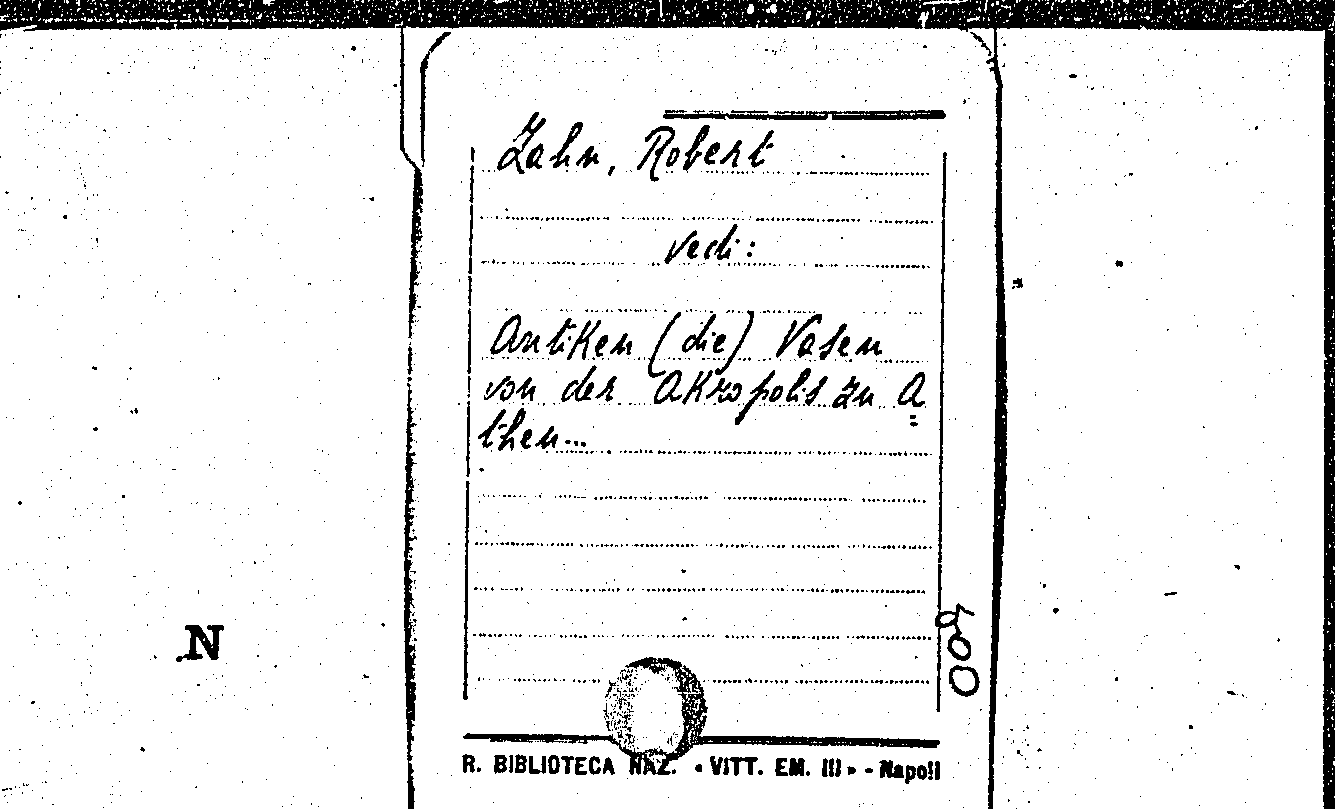 Zahn, Robert
vedi:
Antiken (die) Vasen
von der Akropolis zu A
then...
500
N
R. BIBLIOTECA NAZ. « VITT. EM. III » - Napoli